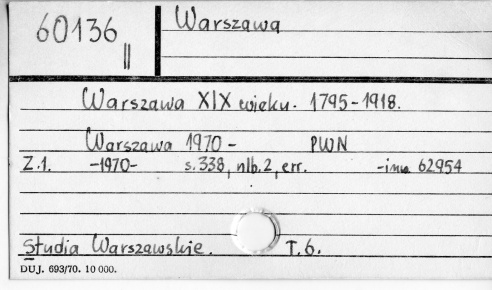 60136
II
Warszawa
Warszawa XIX wieku. 1795-1918.
Warszawa 1970 - PWN
Z.1. -1970- s.338, nlb.2, err. -inw. 62954
Studia Warszawskie. T.6.
DUJ. 693/70. 10 000.